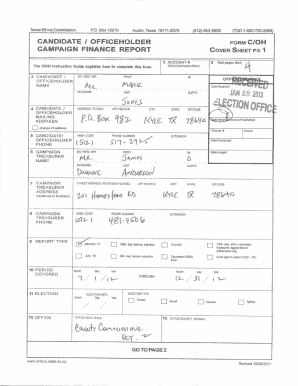 Texas Ethics Commission P.O. Box 12070 Austin, Texas 78711-2070 (512) 463-5800 (TDD 1-800-735-2989)
CANDIDATE / OFFICEHOLDER FORM C/OH
CAMPAIGN FINANCE REPORT COVER SHEET PG 1
The C/OH Instruction Guide explains how to complete this form.
1 ACCOUNT #
2 Total pages filed:
4
3 CANDIDATE / OFFICEHOLDER NAME
MS / MRS / MR FIRST MI
Mr. Mark
NICKNAME LAST SUFFIX
Jones
Date Received
JAN 28 2013
ELECTION OFFICE
4 CANDIDATE / OFFICEHOLDER MAILING ADDRESS
ADDRESS / PO BOX; APT / SUITE #; CITY; STATE; ZIP CODE
P.O. Box 982 Kyle TX 78640
change of address
5 CANDIDATE / OFFICEHOLDER PHONE
AREA CODE PHONE NUMBER EXTENSION
(512)
Receipt # Amount
Date Processed
6 CAMPAIGN TREASURER NAME
MS / MRS / MR FIRST MI
Mr. James D
Date Imaged
NICKNAME LAST SUFFIX
Anderson
7 CAMPAIGN TREASURER ADDRESS
STREET ADDRESS (NO PO BOX PLEASE); APT / SUITE #; CITY; STATE; ZIP CODE
Kyle TX 78640
8 CAMPAIGN TREASURER PHONE
AREA CODE PHONE NUMBER EXTENSION
9 REPORT TYPE
January 15
30th day before election
Runoff
15th day after campaign treasurer appointment
July 15
8th day before election
Exceeded $500 limit
Final report
10 PERIOD COVERED
Month Day Year THROUGH Month Day Year
7 / 1 / 12 12 / 31 / 12
11 ELECTION
ELECTION DATE
Month Day Year
ELECTION TYPE
Primary
Runoff
General
Special
12 OFFICE
OFFICE HELD (if any)
County Commissioner
PCT. 2
13 OFFICE SOUGHT (if known)
GO TO PAGE 2
www.ethics.state.tx.us